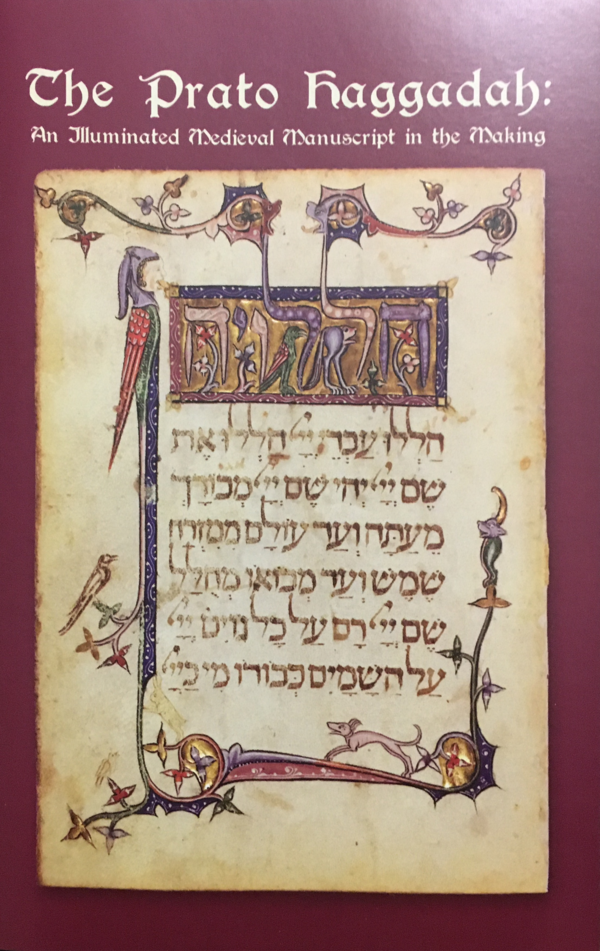 The Prato Haggadah:
An Illuminated Medieval Manuscript in the Making
הללויה
הַלְלוּ עַבְדֵי יְיָ הַלְלוּ אֶת
שֵׁם יְיָ יְהִי שֵׁם יְיָ מְבוֹרָךְ
מֵעַתָּה וְעַד עוֹלָם מִמִּזְרַח
שֶׁמֶשׁ וְעַד מְבוֹאוֹ מְהֻלָּל
שֵׁם יְיָ רָם עַל כָּל גּוֹיִם יְיָ
עַל הַשָּׁמַיִם כְּבוֹדוֹ מִי כַּיְיָ